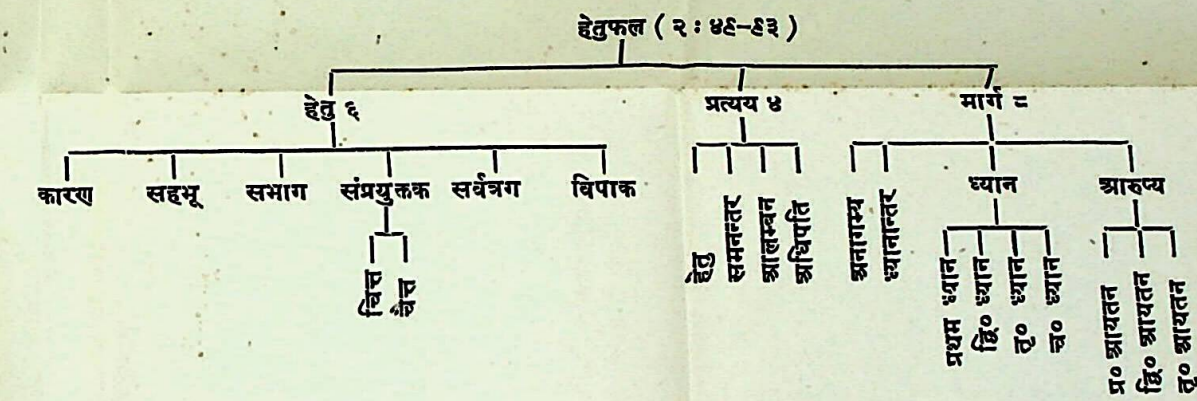 हेतुफल ( २ : ४९-९३ )
हेतु ६
प्रत्यय ४
मार्ग ८
कारण
सहभू
सभाग
संप्रयुक्तक
सर्वत्रग
विपाक
चित्त
चैत्त
हेतु
समनन्तर
आलम्बन
अधिपति
अनागम्य
ध्यानान्तर
ध्यान
आरुप्य
प्रथम ध्यान
द्वि० ध्यान
तृ० ध्यान
च० ध्यान
प्र० आयतन
द्वि० आयतन
तृ० आयतन